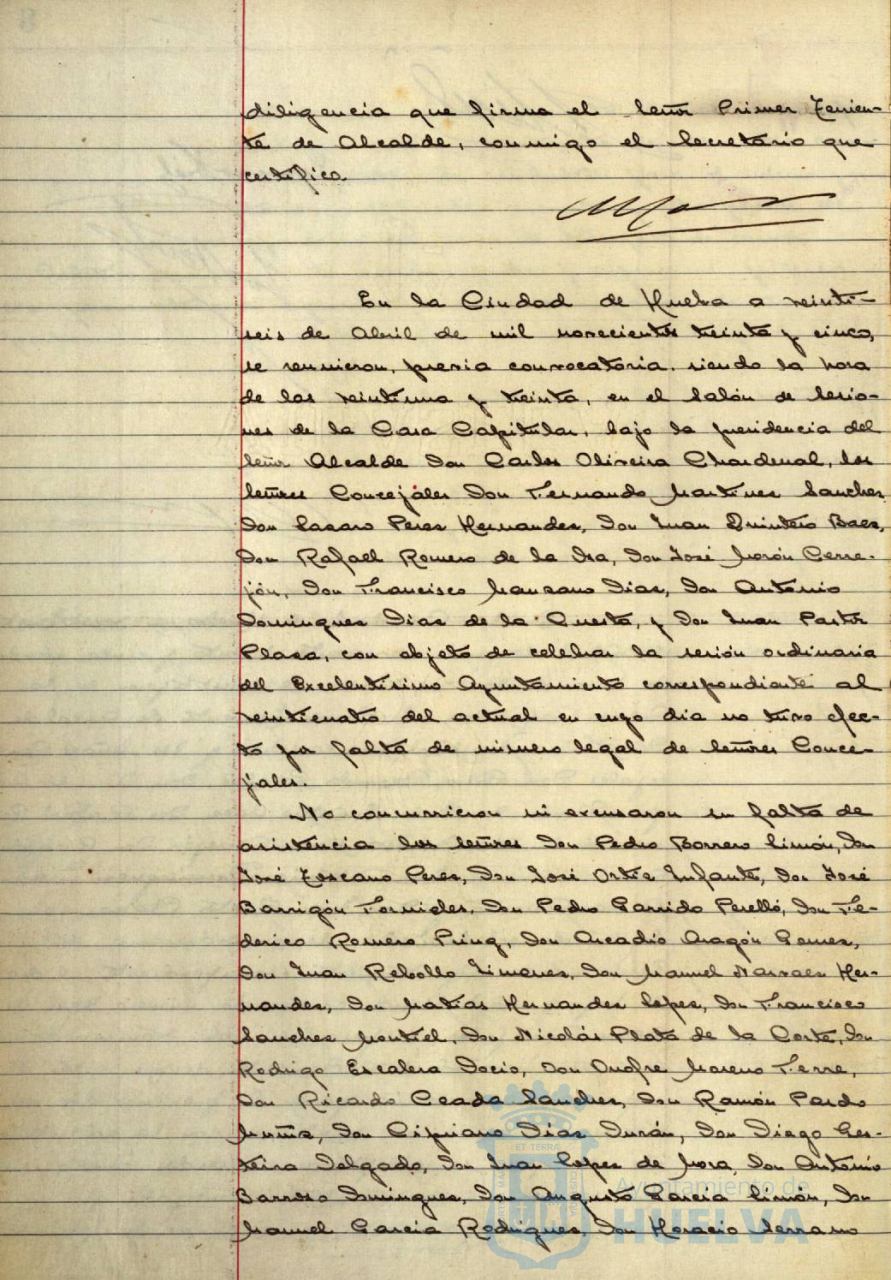 diligencia que firma el Señor Primer Tenien-
te de Alcalde, conmigo el Secretario que
certifico.
En la Ciudad de Huelva a veinti-
seis de Abril de mil novecientos treinta y cinco,
se reunieron, previa convocatoria, siendo la hora
de las veintiuna y treinta, en el Salón de Sesio-
nes de la Casa Capitular, bajo la presidencia del
Señor Alcalde Don Carlos Oliveira Chardenal, los
Señores Concejales Don Fernando Martines Sanches,
Don Lasaro Peres Hernandes, Don Juan Quintero Baes,
Don Rafael Romero de la Isa, Don José Morón Cerre-
jón, Don Francisco Mansano Dias, Don Antonio
Domingues Dias de la Cuesta, y Don Juan Pastor
Plasa, con objeto de celebrar la sesión ordinaria
del Excelentísimo Ayuntamiento correspondiente al
veinticuatro del actual en cuyo dia no tuvo efec-
to por falta de número legal de Señores Conce-
jales.
No concurrieron ni excusaron su falta de
asistencia los Señores Don Pedro Borrero Limón, Don
José Toscano Peres, Don José Ortiz Infante, Don José
Barrigón Fornieles, Don Pedro Garrido Perelló, Don Fe-
derico Romero Pring, Don Arcadio Aragón Gomes,
Don Juan Rebollo Jimenes, Don Manuel Narvaes Her-
nandes, Don Matias Hernandes Lopes, Don Francisco
Sanches Montiel, Don Nicolás Plata de la Corte, Don
Rodrigo Escalera Docio, Don Onofre Moreno Terre,
Don Ricardo Ceada Sanches, Don Ramón Pardo
Muñis, Don Cipriano Dias Durán, Don Diego Ges-
teira Delgado, Don Juan Lopes de Mora, Don Antonio
Barroso Domingues, Don Augusto Garcia Limón, Don
Manuel Garcia Rodrigues, Don Horacio Serrano
Ayuntamiento de
HUELVA